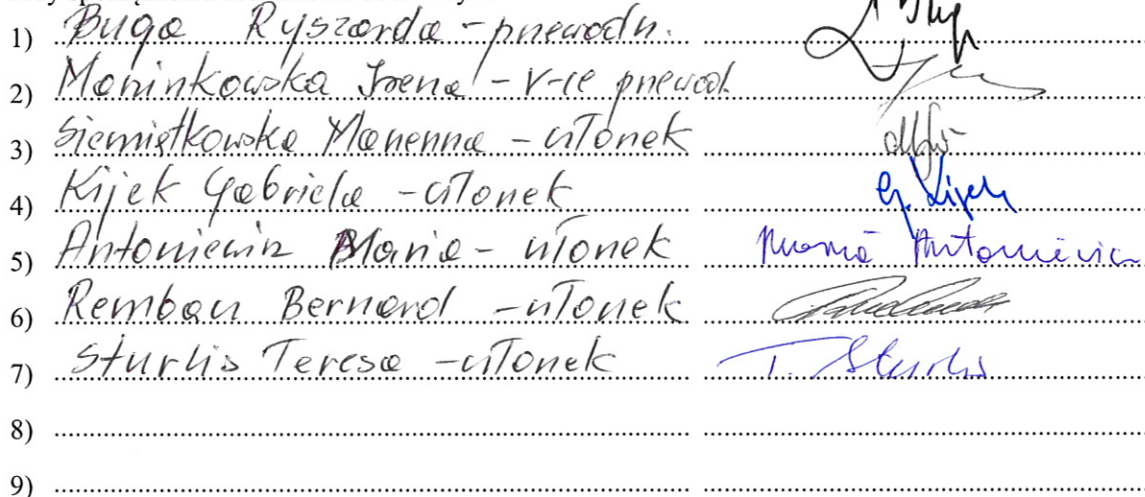 1) Buga Ryszarda - przewodn.
2) Maninkowska Irena - V-ce przewod.
3) Siemiątkowska Marzenna - członek
4) Kijek Gabriela - członek G. Kijek
5) Antoniewicz Maria - członek Maria Antoniewicz
6) Rembacz Bernard - członek
7) Sturlis Teresa - członek T. Sturlis
8)
9)